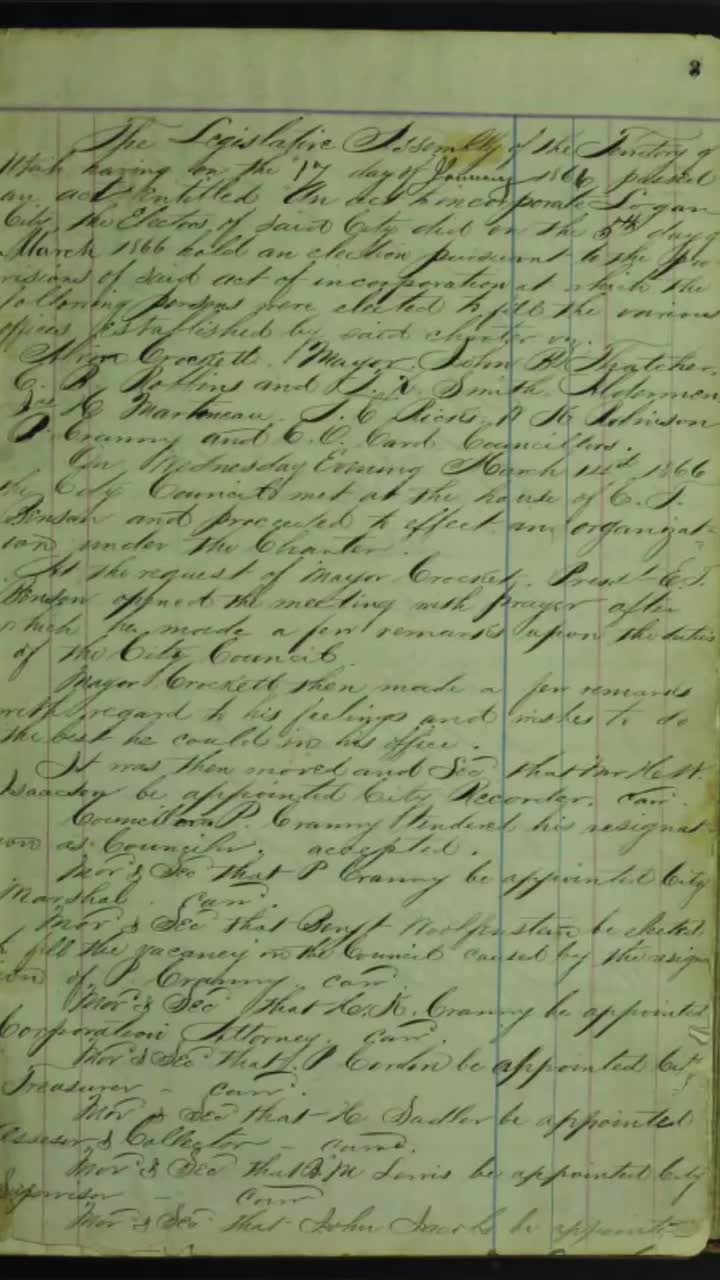 3
The Legislative Assembly of the Territory of
Utah having on the 17 day of January 1866 passed
an act entitled An act to incorporate Logan
City, the Electors of said City did on the 5th day of
March 1866 hold an election pursuant to the pro
visions of said act of incorporation at which the
following persons were elected to fill the various
offices established by said charter viz.
Alvin Crockett. Mayor. John B Thatcher,
C. B. Robbins and Smith Aldermen
H Martineau. T. E Ricks. Robinson
P. Cranny and C. O. Card Councillors.
On Wednesday Evening March 14th 1866
the City Council met at the house of E. T.
Benson and proceeded to effect an organizat
ion under the Charter.
At the request of Mayor Crockett. Prest E. T.
Benson opened the meeting with prayer after
which he made a few remarks upon the duties
of the City Council.
Mayor Crockett then made a few remarks
with regard to his feelings and wishes to do
the best he could in his office.
It was then moved and Sec that
Isaacson be appointed City Recorder. carr.
Councillor P. Cranny tendered his resignat
ion as Councilor. accepted.
Mov & Sec that P Cranny be appointed City
Marshal. carr.
Mov & Sec that be elected
fill the vacancy in the Council caused by the resign
ion of P Cranny carr.
Mov & Sec that H. K. Cranny be appointed
Corporation Attorney. carr.
Mov & Sec that P be appointed City
Treasurer - carr.
Mov & Sec that H Sadler be appointed
Assesor & Collector - carrd.
Mov & Sec that B. M Lewis be appointed City
Supervisor - carr
Mov & Sec that John Jacobs be appointed